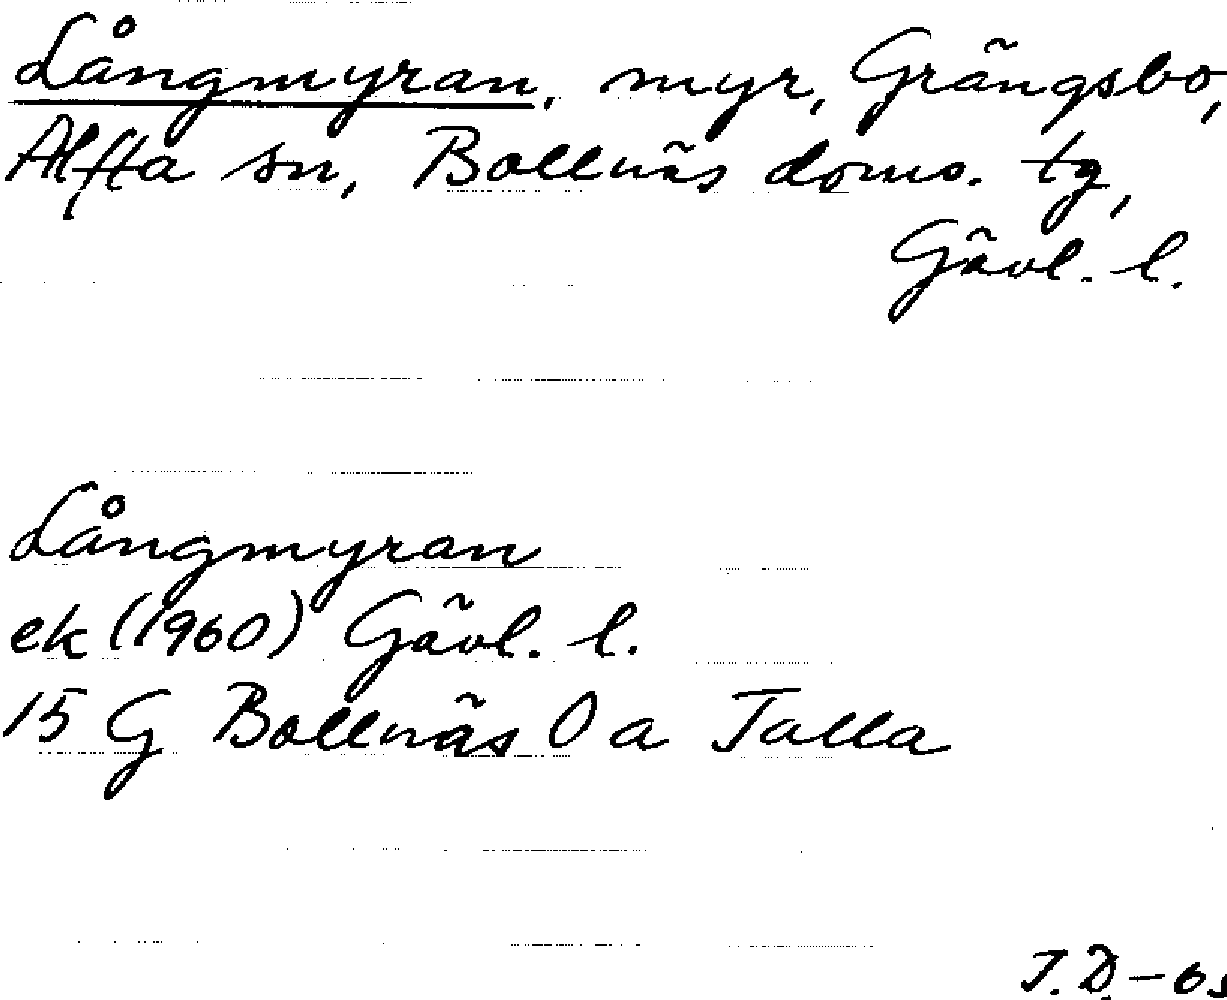 Långmyran, myr, Grängsbo,
Alfta sn, Bollnäs doms. tg,
Gävl. l.
Långmyran
ek (1960) Gävl. l.
15 G Bollnäs O a Talla